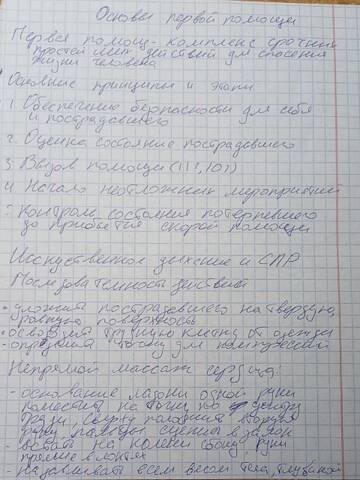 Основы первой помощи
Первая помощь - комплекс срочных
простейших действий для спасения
жизни человека
Основные принципы и этапы
1. Обеспечение безопасности для себя
и пострадавшего
2. Оценка состояние пострадавшего
3. Вызов помощи (112, 103)
4. Начало неотложных мероприятий
5. Контроль состояния потерпевшего
до прибытия скорой помощи
Искуственное дыхание и СЛР
Последовательность действий
• уложить пострадавшего на твёрдую,
ровную поверхность
• освободить грудную клетку от одежды
• определить точку для компрессий
Непрямой массаж сердца:
- основание ладони одной руки
поместить на точку по центру
груди, сверху положить вторую
руку, пальцы сцепить в замок
- встать на колени сбоку, руки
прямые в локтях
- надавливать всем весом тела, глубиной